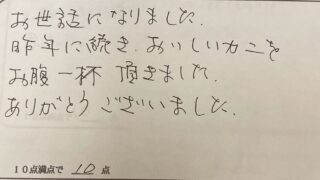 お世話になりました.
昨年に続き、おいしいカニを
お腹一杯 頂きました.
ありがとうございました.
10点満点で 10 点